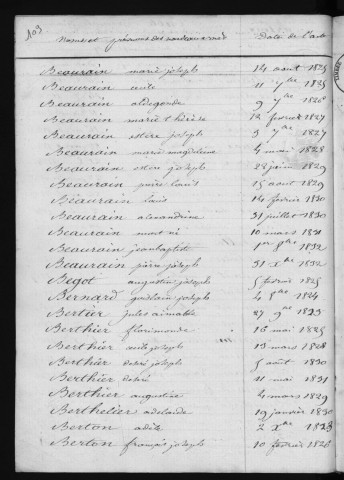 103
Noms et prénoms des nouveaux nés Date de l'acte
Beaurain marie joseph 14 aout 1825
Beaurain 11 7bre 1825
Beaurain aldegonde 9 7bre 1826
Beaurain marie thérèse 12 fevrier 1827
Beaurain joseph 3 7bre 1827
Beaurain marie magdeleine 4 mai 1828
Beaurain joseph 22 juin 1829
Beaurain louis 15 aout 1829
Beaurain louis 14 fevrier 1830
Beaurain alexandrine 31 juillet 1830
Beaurain 10 mars 1831
Beaurain jean baptiste 1832
Beaurain pierre joseph 31 Xbre 1832
Begot augustin joseph 5 fevrier 1825
Bernard guislain joseph 1824
Bertier jules aimable 27
Berthier florimonde 16 mai 1825
Berthier joseph 13 mars 1828
Berthier désiré joseph 5 aout 1830
Berthier désiré 11 mai 1831
Berthier augustine 4 mars 1829
Berthelier adelaide 19 janvier 1830
Berton adèle 2 Xbre 1823
Berton françois joseph 10 fevrier 1826